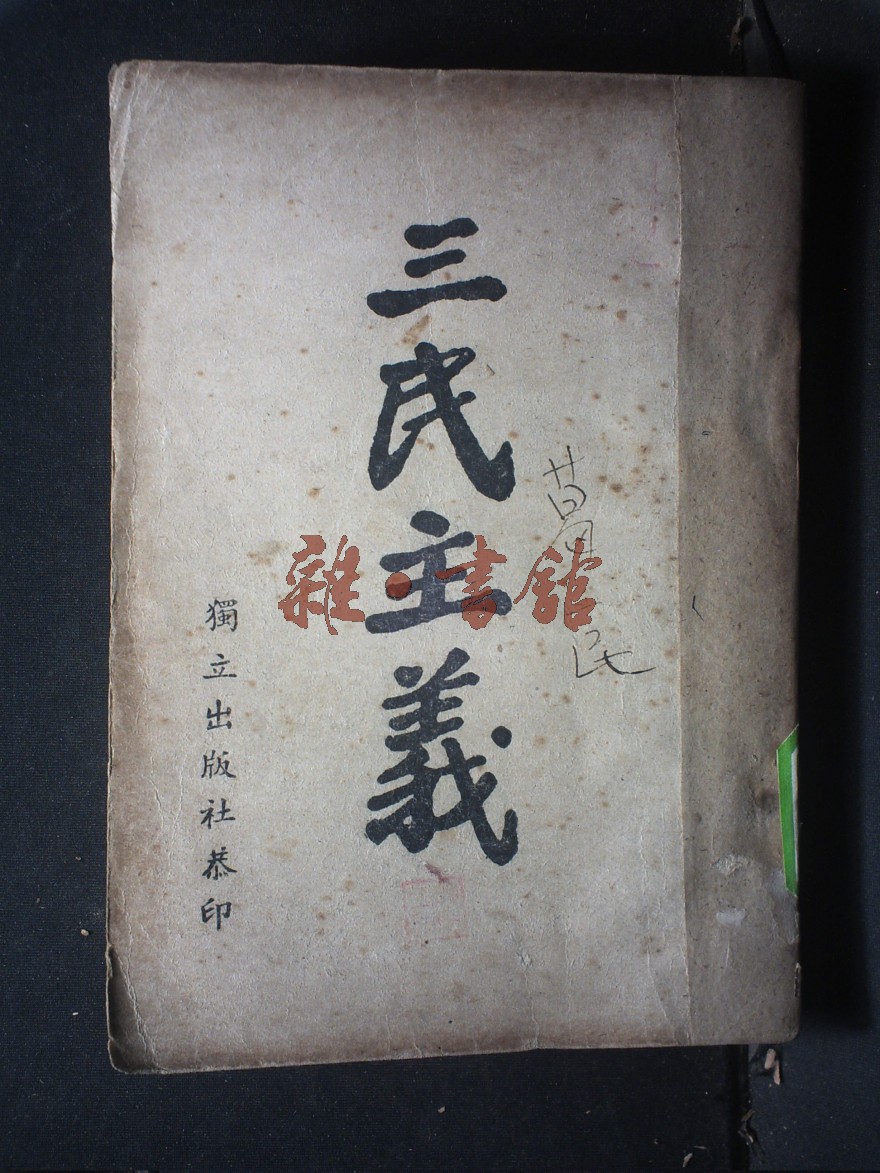 三民主義
獨立出版社恭印
雜·書館